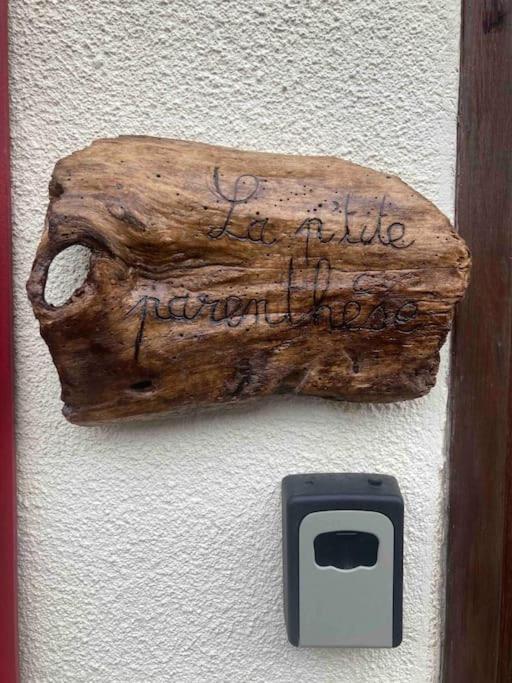 La p'tite
parenthèse